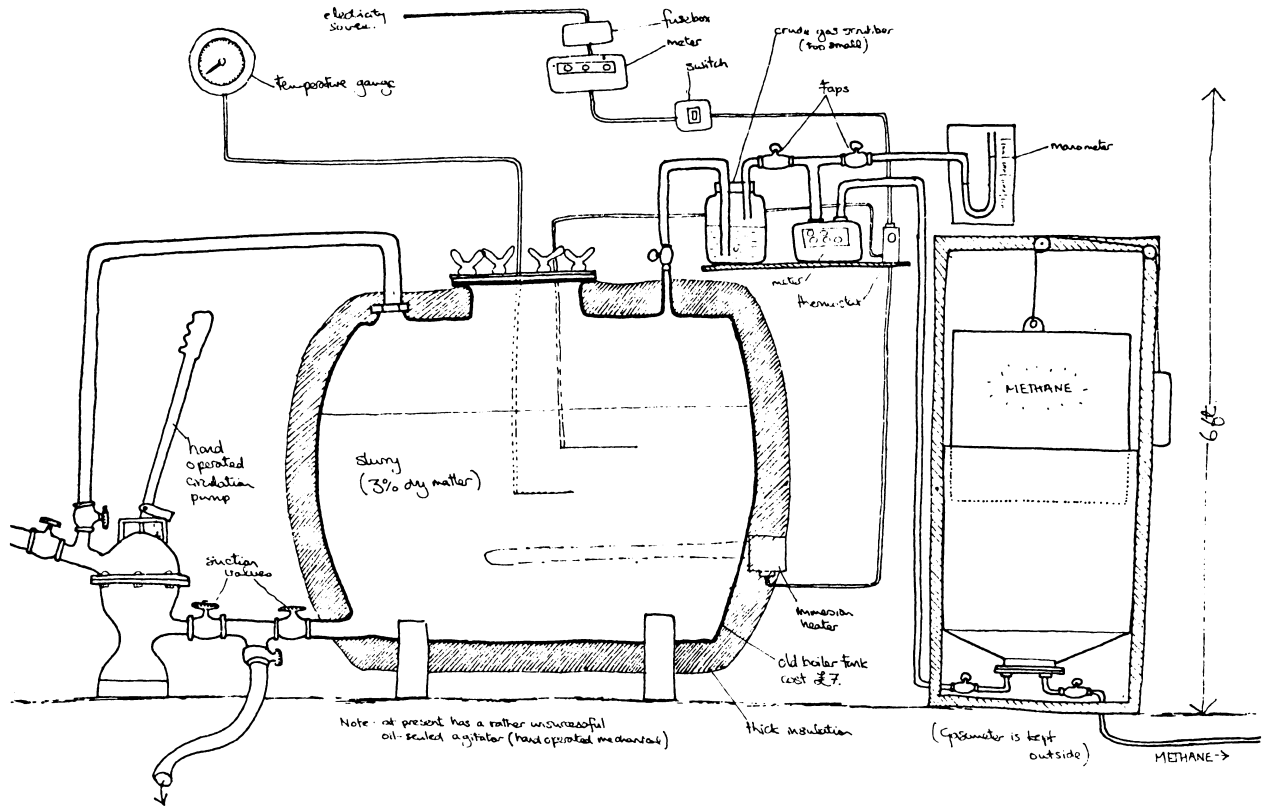 electricity
source.
fusebox
meter
crude gas scrubber
(too small)
switch
taps
temperature gauge
manometer
meter
thermostat
METHANE
6ft.
hand
operated
circulation
pump
slurry
(3% dry matter)
suction
valves
immersion
heater
old boiler tank
cost £7.
thick insulation
Note - at present has a rather unsuccessful
oil-sealed agitator (hand operated mechanism)
(Gasometer is kept
outside)
METHANE →